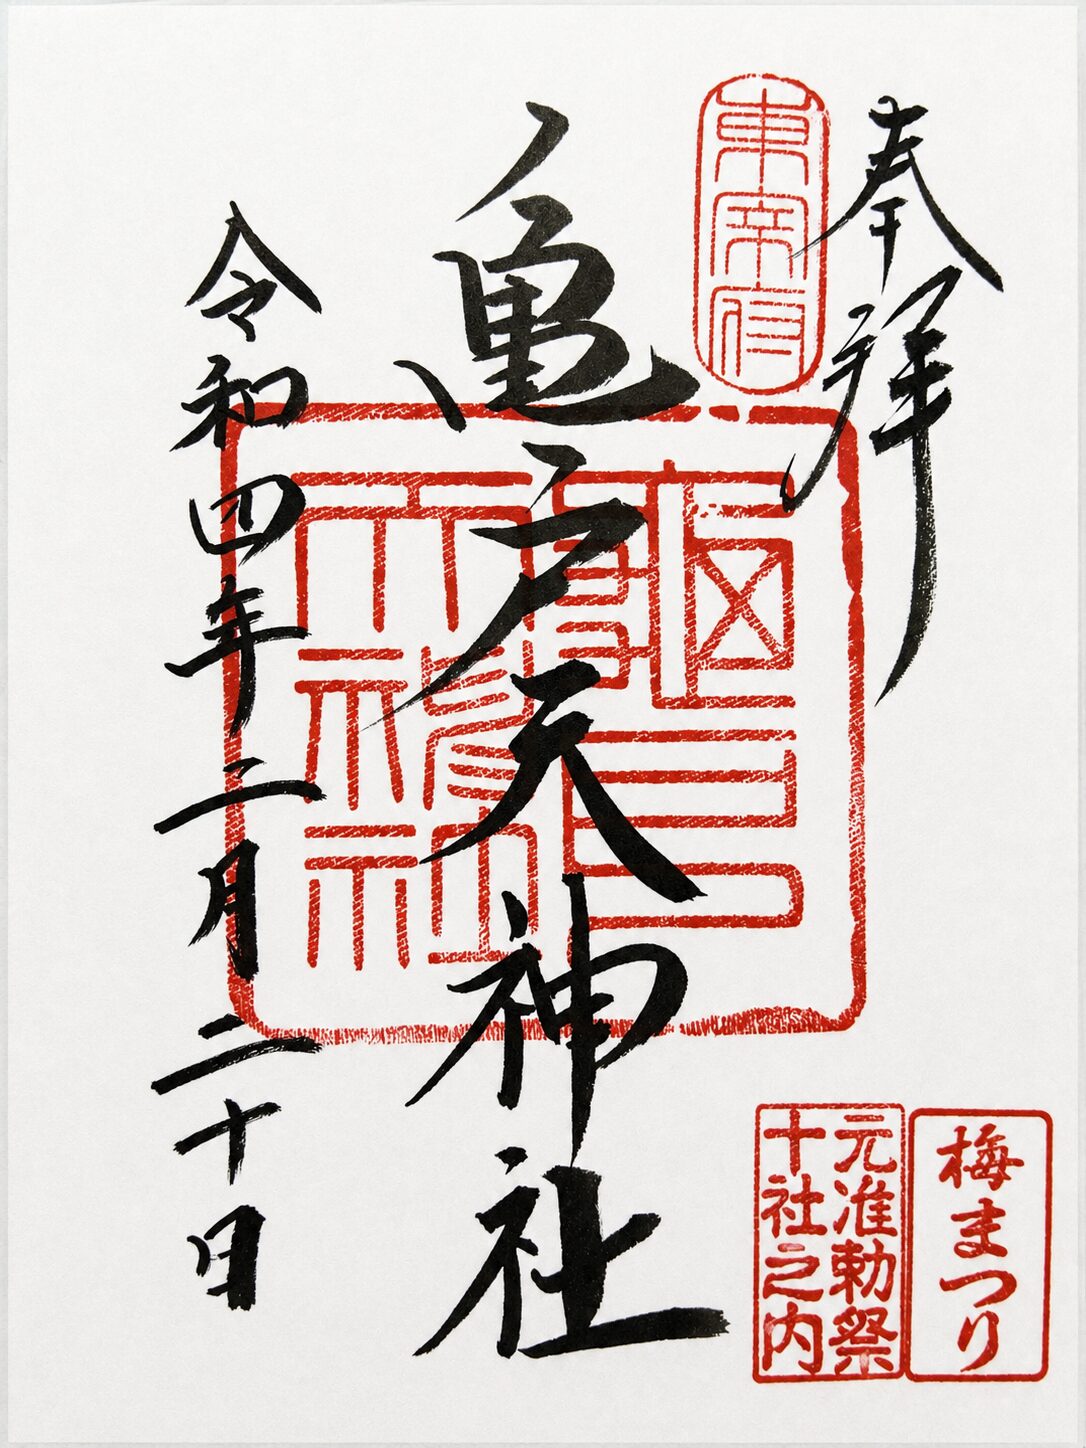 奉拝
東宰府
亀戸天神社
令和四年二月二十日
梅まつり
元准勅祭
十社之内